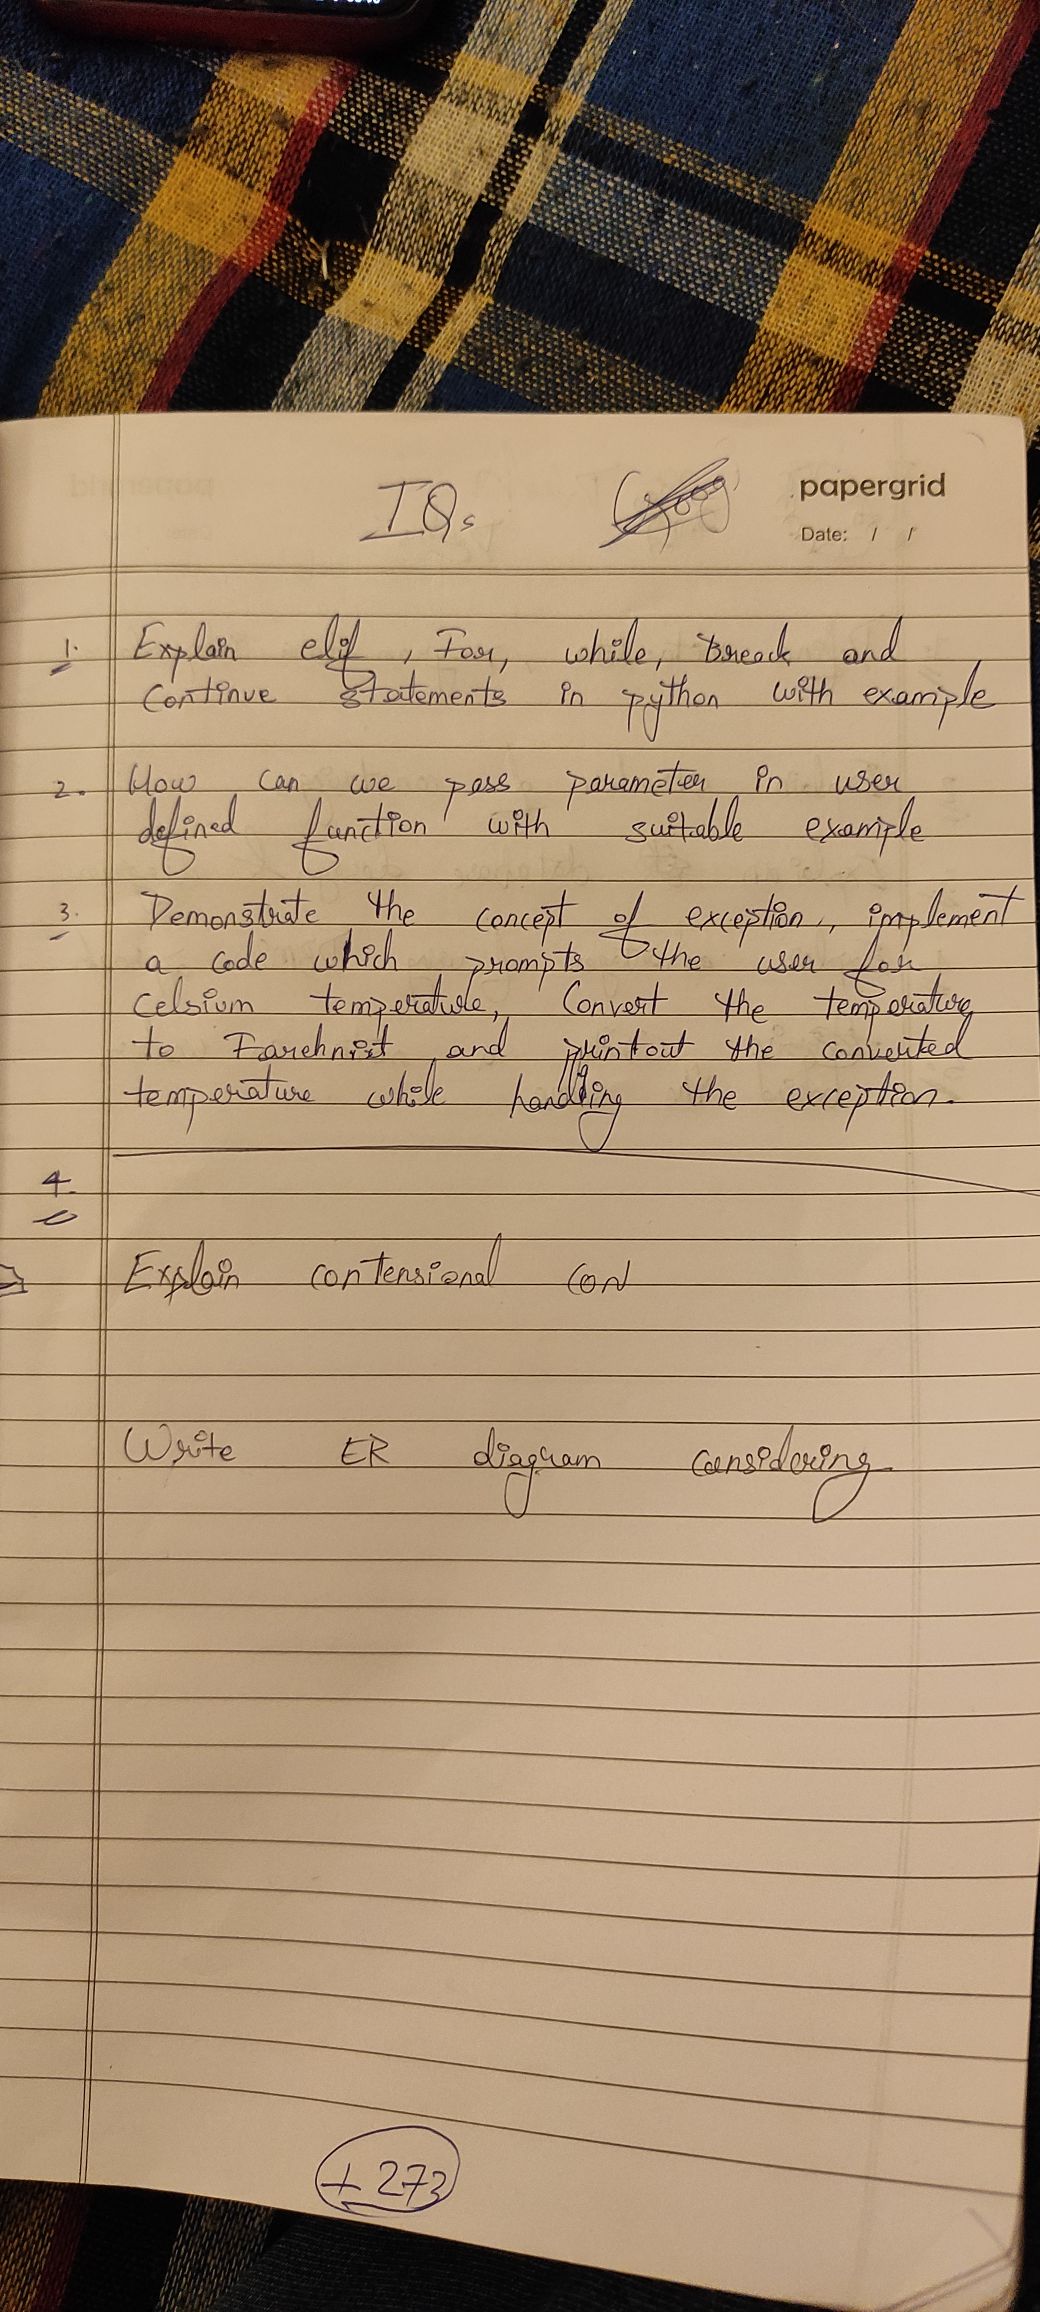 IQs
papergrid
Date: / /
1. Explain elif, For, while, Breack and
continue statements in python with example
2. How can we pass parameter in user
defined function with suitable example
3. Demonstrate the concept of exception, implement
a code which prompts the user for
Celsium temperature, Convert the temperature
to Farehnist and printout the converted
temperature while handling the exception.
4.
Explain contensional con
Write ER diagram considering
+ 273